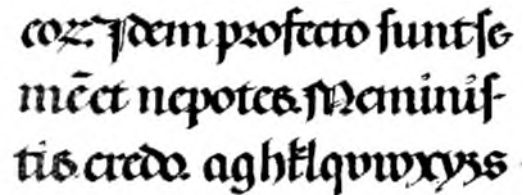 coꝝ. Idem profecto sunt se
mēet nepotes. Meminis-
tis credo. aghklqvwxyzs